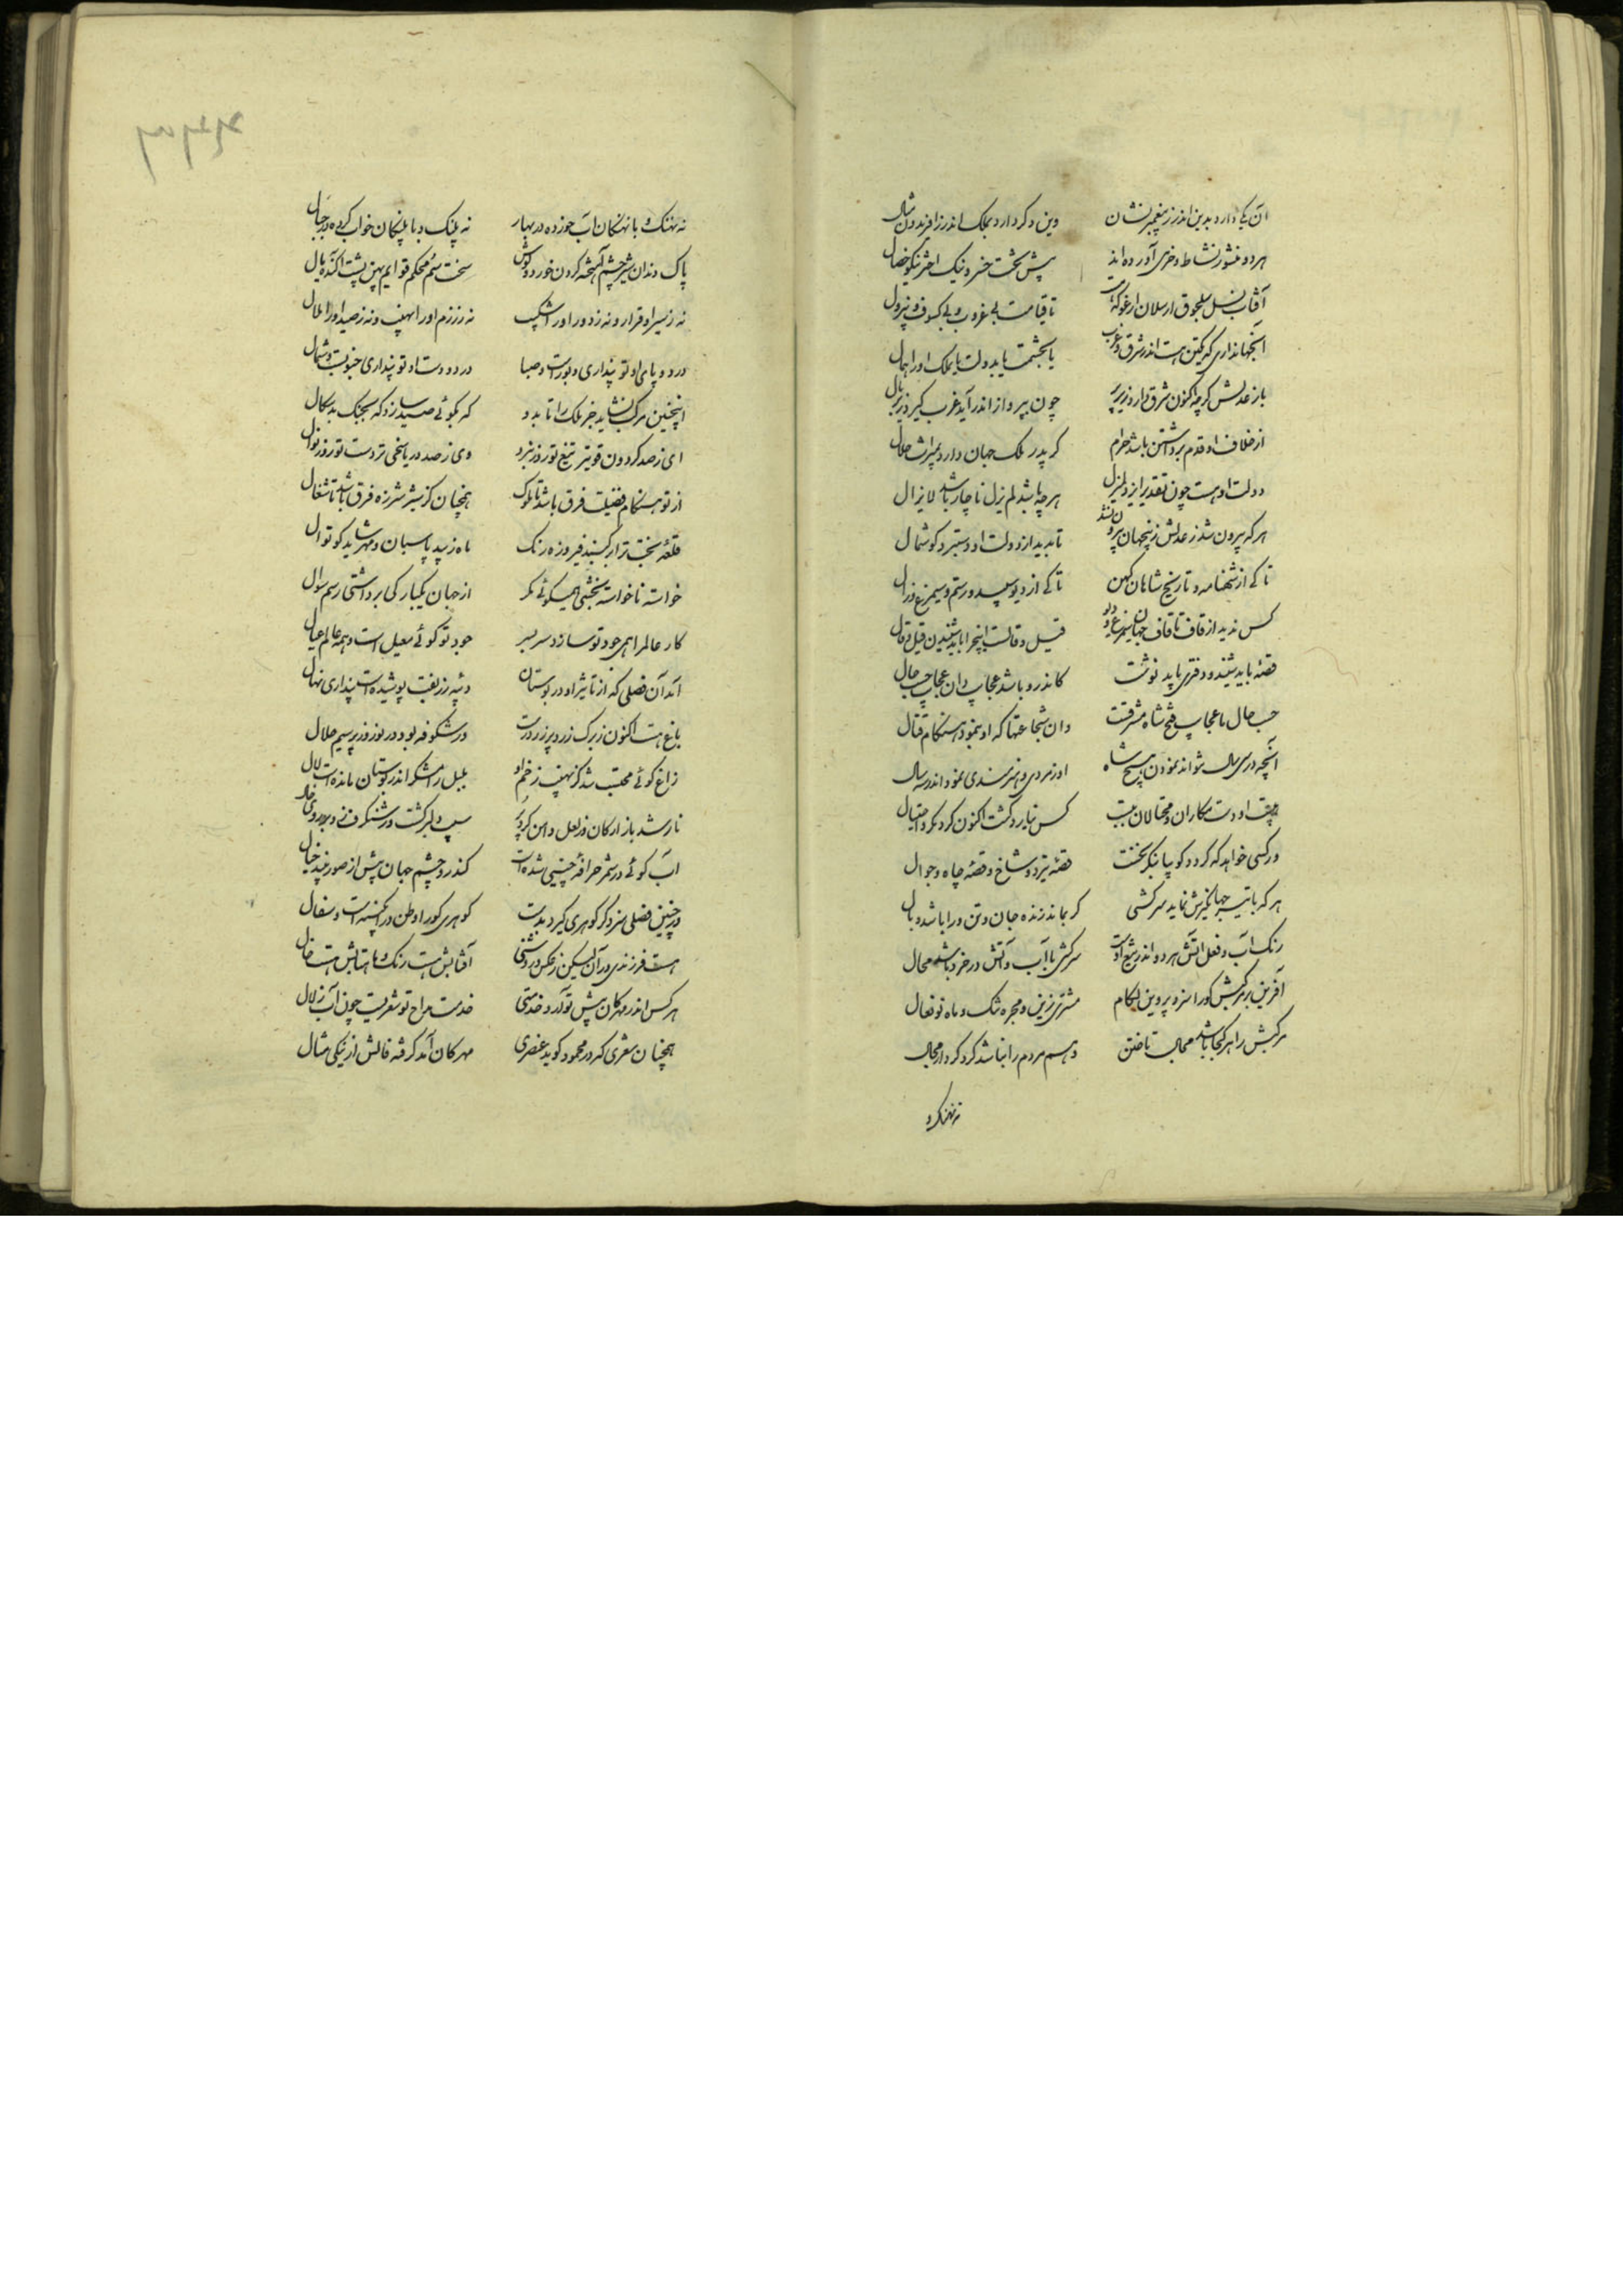 آن یکی دارد بدین اندرز پیغمبر نشان
وین دگر دارد بملک اندر ز افریدون مثال
هر دو منشور نشاط و خرمی آورده‌اند
پیش تخت خسرو نیک اختر نیکو خصال
آفتاب نسل سلجوق ارسلان ارغو که هست
تا قیامت بی غروب و بی کسوف و بی زوال
آنجهانداری که یکتن هست اندر شرق و غرب
باز عدلش گرچه اکنون شرق دارد زیر پر
چون بپرواز اندر آید غرب گیرد زیر بال
از خلاف او قدم برداشتن باشد حرام
کز پدر ملک جهان دارد بمیراث حلال
دولت او هست چون تقدیر ایزد لم یزل
هر چه باشد لم یزل ناچار باشد لایزال
هر که بیرون شد ز عدلش زینجهان بیرون شد
تا پدید از دولت او دستبرد و گوشمال
تا کی از شهنامه و تاریخ شاهان کهن
تا کی از دیو سپید و رستم و سیمرغ و زال
کس ندید از قاف تا قاف جهان سیمرغ و دیو
قیل و قالست اینچرا باید شنیدن قیل و قال
قصه باید شنید و دفتری باید نوشت
کاندرو باشد عجایب وان عجایب حسب حال
حسب حال ما عجایب فتح شاه مشرقست
وان شجاعتها که او بنمود هنگام قتال
آنچه در سی سال نتواند نمودن هیچ شاه
او ز مردی و هنرمندی نمود اندر سه سال
هیبت او دست مکاران و محتالان ببست
کس نیارد گشت اکنون گرد مکر و احتیال
ور کسی خواهد که گردد گو بیا بنگر نخست
هر که با تیغ جهانگیرش نماید سرکشی
گر بماند زنده جان و تن ورا باشد وبال
رنگ آب و فعل آتش هر دو اندر تیغ اوست
سرکشی با آب و آتش در خرد باشد محال
آفرین بر مرکبش کورا سزد پروین لگام
مشتری زین و مجره تنگ و ماه نو نعال
مرکبش را هر کجا باشد مجال تاختن
وهم مردم را نباشد گرد گردش مجال
نه نهنک و
نه نهنک و با نهنگان آب خورده در بهار
نه پلنک و با پلنگان خواب کرده در جبال
پاک دندان شیر چشم آهخته گردن خورد گوش
سخت سم محکم قوایم پهن پشت آکنده یال
نه ز سیر او را قرار و نه ز دور او را شکیب
نه ز رزم او را نهیب و نه ز صید او را ملال
در دو پای او تو پنداری دبورست و صبا
در دو دست او تو پنداری جنوبست و شمال
اینچنین مرکب نشاید جز ملک را تا بدو
گه بگوئی صید سازد گه بجنگ بدسگال
ای ز صد گردون قویتر تیغ تو روز نبرد
وی ز صد دریا سخی تر دست تو روز نوال
از تو هنگام فضیلت فرق باشد تا ملوک
همچنان کز شیر شرزه فرق باشد تا شغال
قلعه بخت ترا بر گنبد فیروزه رنگ
ماه زیبد پاسبان و مهر شاید کوتوال
خواسته ناخواسته بخشی همیگوئی مگر
از جهان یکبارگی برداشتی رسم سوال
کار عالم را همی جود تو سازد سربسر
جود تو گوئی معیل است و همه عالم عیال
آمد آن فصلی که از تاثیر او در بوستان
باغ هست اکنون ز برگ زرد پر زر درست
ور شکوفه بود در نوروز پر سیم حلال
زاغ گوئی محتسب شد کز نهیب زخم او
بلبل رامشگر اندر بوستان مانده است لال
نار شد بازارگان وز لعل دامن کرد پر
آب گوئی در شمر صرافه چینی شده است
کندرو چشم جهان پیش از صور بیند خیال
در چنین فصلی سزد گر گوهری گیرد بدست
گوهری کورا وطن در آبگینه است و سفال
هست فرزندی در آن لیکن ز عکس و روشنی
آفتابش هست رنگ و ماهتابش هست خال
هر کس اندر مهرگان پیش تو آرد خدمتی
خدمت مداح تو شعریست چون آب زلال
همچنان شعری که در محمود گوید عنصری
مهرگان آمد گرفته فالش از نیکی مثال